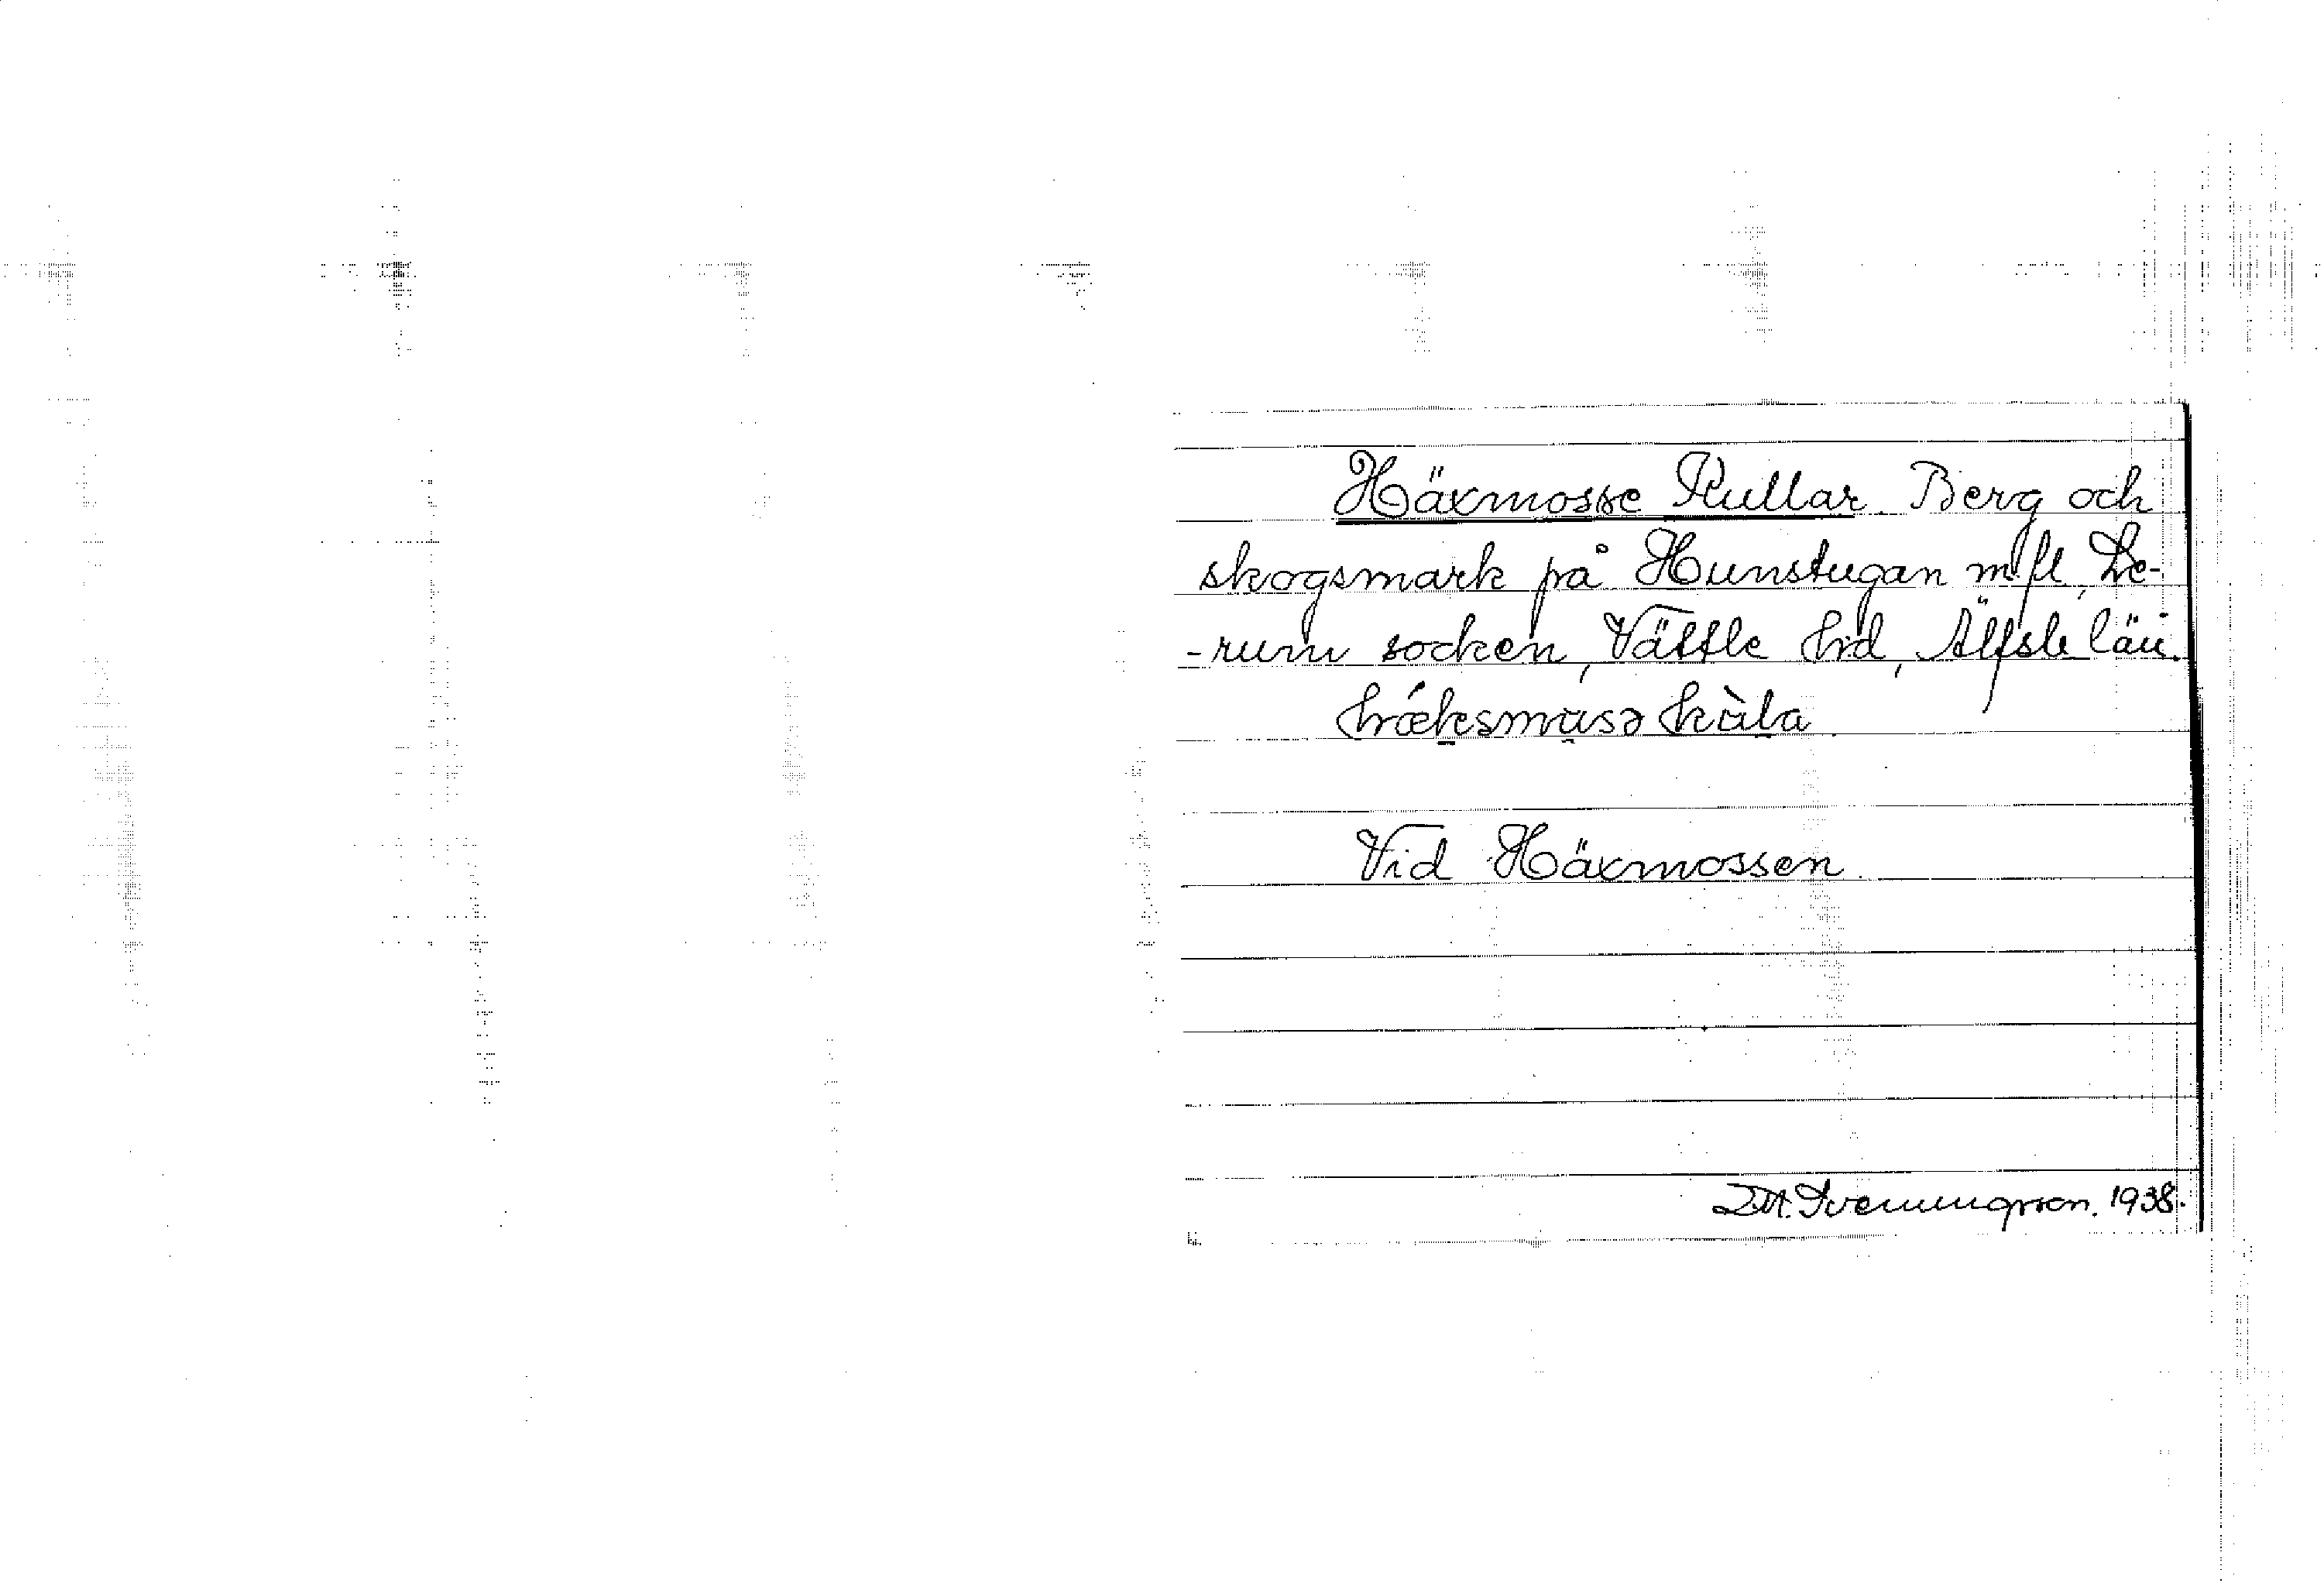 Häxmosse Kullar. Berg och
skogsmark på Hunstugan m fl, Le-
-rum socken, Vättle hd, Älfsb län.
hǽksmasə kàla
Vid Häxmossen.
Svenungsson. 1938.